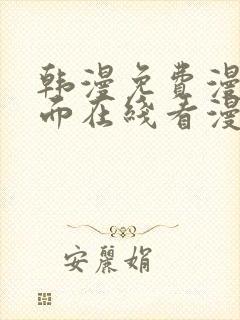 韩漫免费漫
而在线看漫
安丽娟